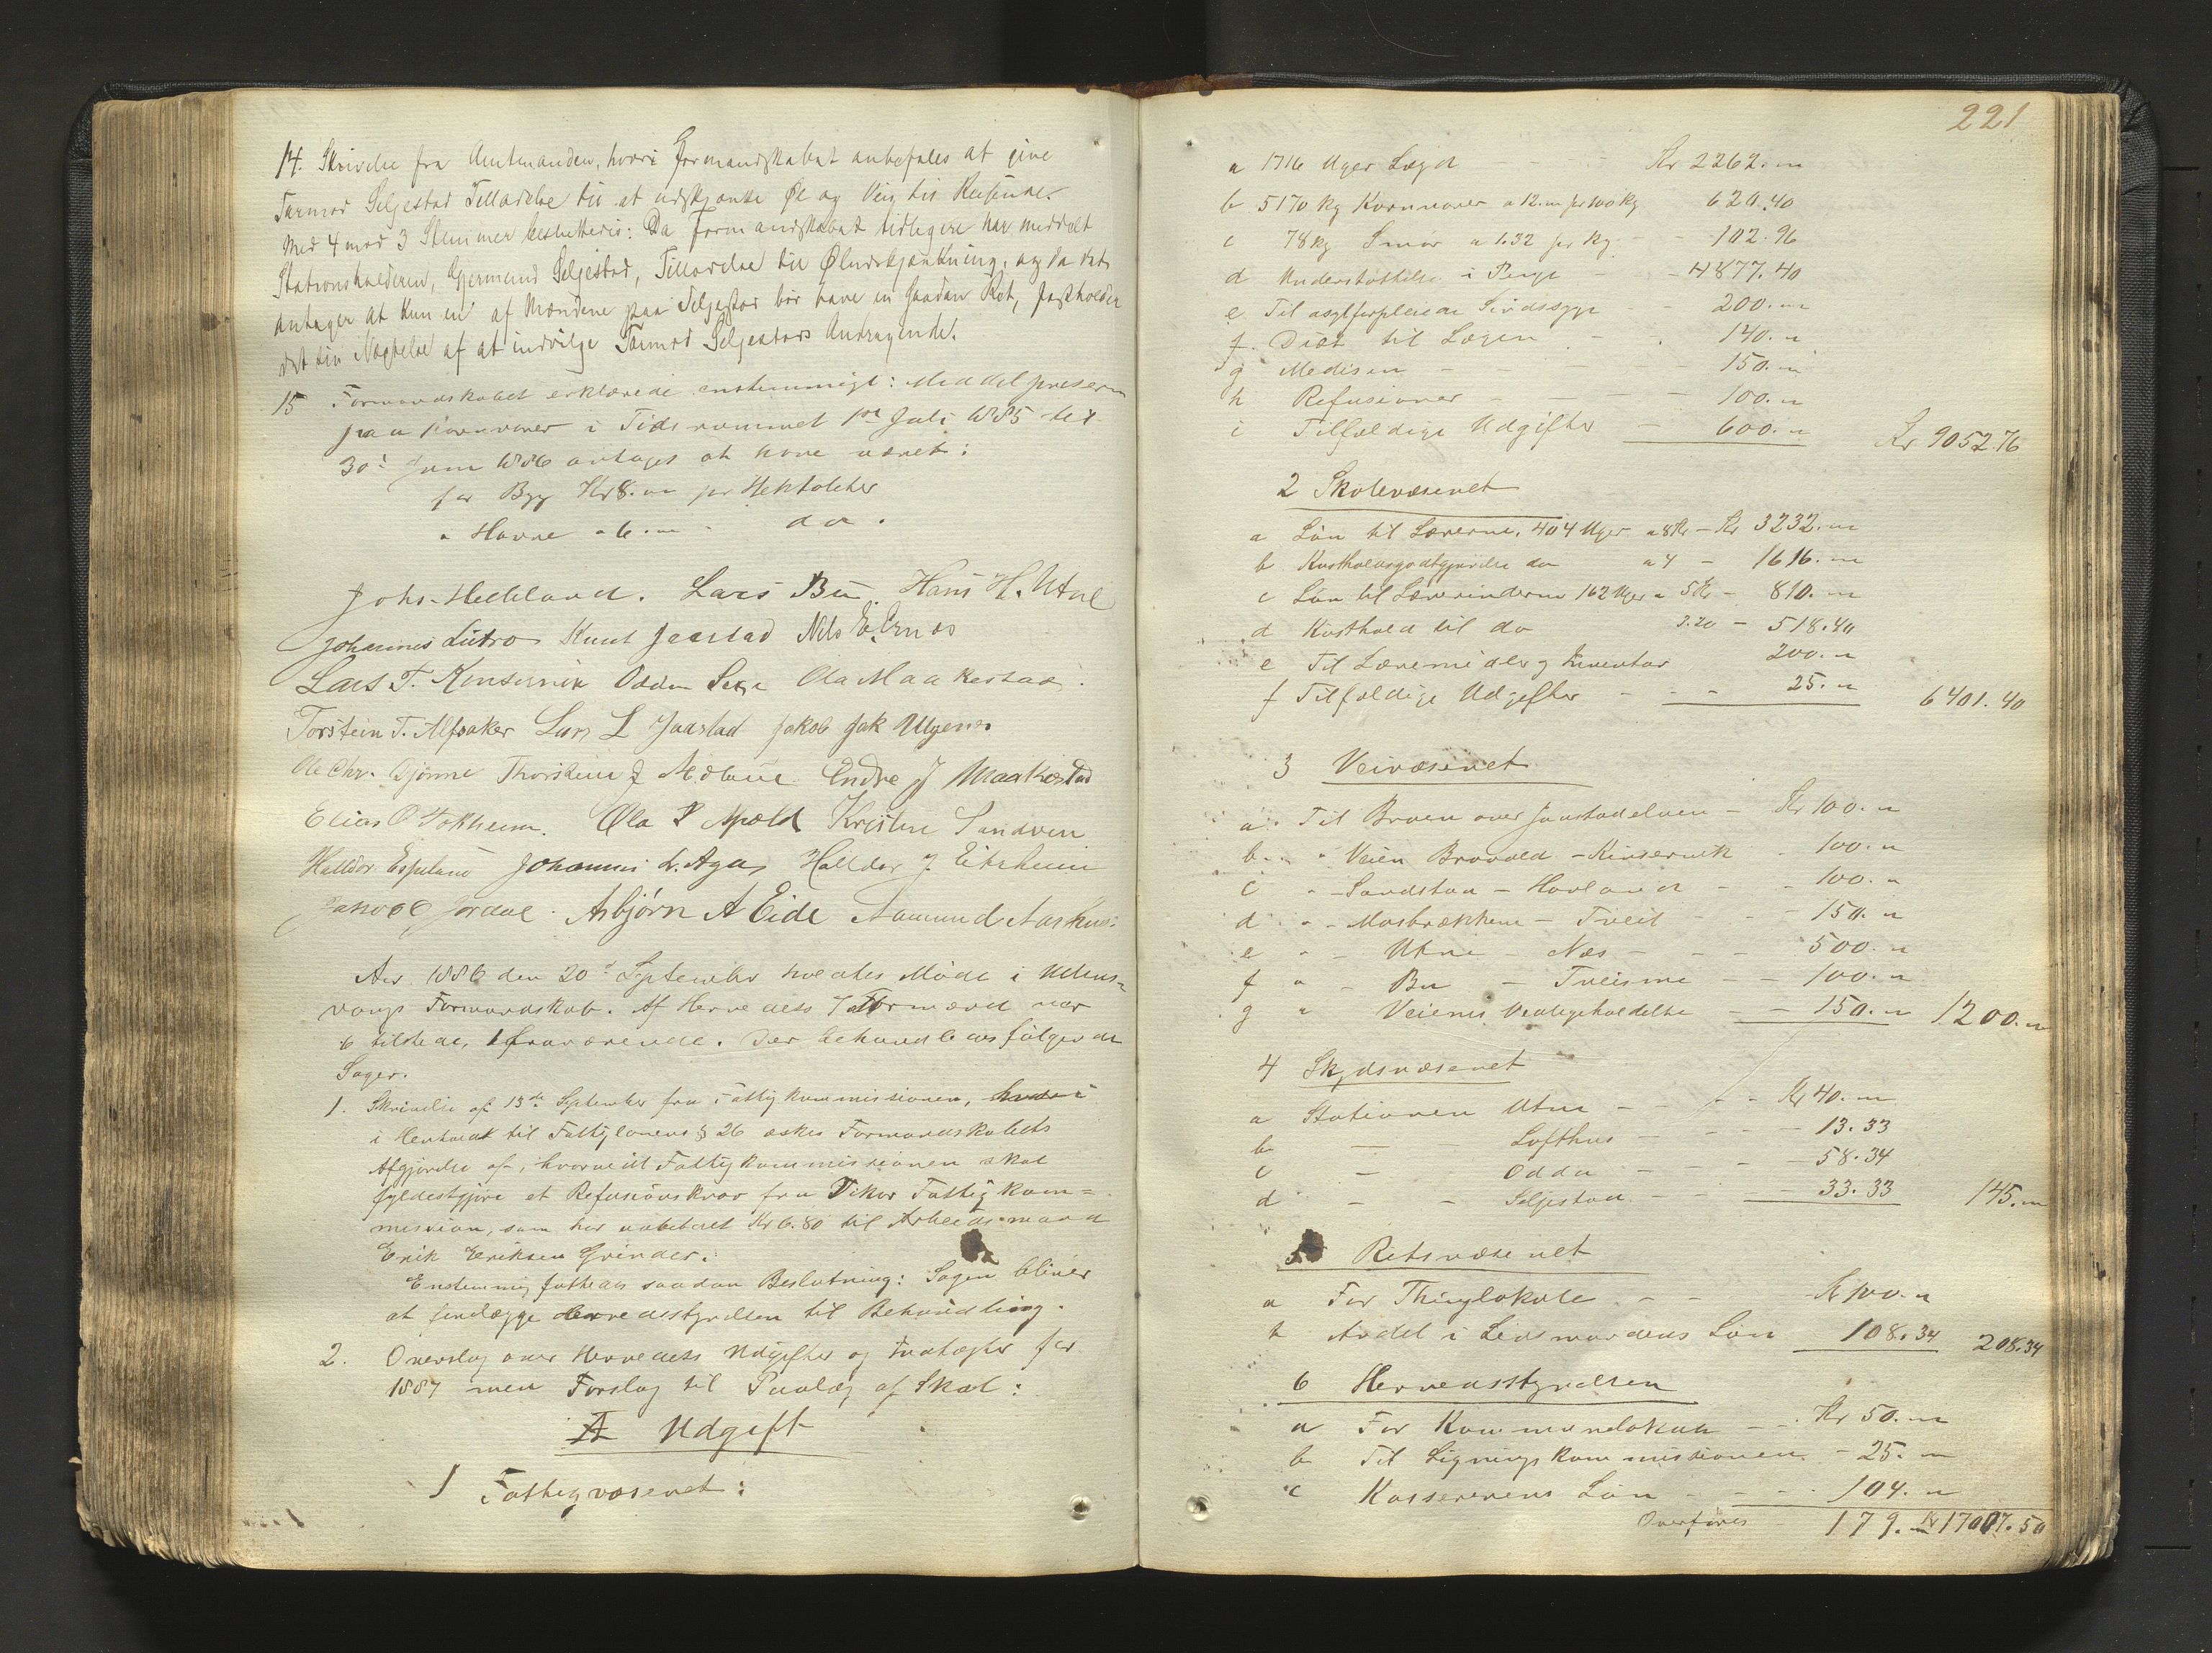 14. Skrivelse fra Amtmanden, hvori Formandskabet anbefales at give
Tarmod Seljestad Tilladelse til at udskjænke Øl og Vin til Reisende.
Med 4 mod 3 Stemmer besluttedes: Da Formandskabet tidligere har meddelt
Stationsholderen, Gjermund Seljestad, Tilladelse til Øludskjænkning, og da det
antager at kun en af Mændene paa Seljestad bør have en saadan Ret, fastholder
det sin Nægtelse af at indvilge Tarmod Seljestads Andragende.
15 Formandskabet erklærede enstemmigt: Middelprisen
paa Kornvarer i Tidsrummet 1ste Juli 1885 til
30te Juni 1886 antages at have været:
for Byg Kr 8.00 pr Hektoliter
" Havre " 6.00 " do.
Johs. Helleland. Lars Bu. Hans H. Utne
Johannes Lutro Knut Jaastad Nils E. Ernes
Lars T. Kinservik Odden Sexe Ola Maakestad.
Torstein T. Alfsaker Lars L Jaastad Jakob Jak Ulgenes
Ole Chr. Bjørne Thorstein J Mælene Endre J Maakestad
Elias O Tokheim. Ola P Apold Kristen Sandven
Halldor Espeland Johannes L. Aga, Halldor J. Eitrheim
Jakob O Jordal. Asbjørn A Eide Aamund Aarhus:
Aar 1886 den 20de September holdtes Møde i Ullens-
vangs Formandskab. Af Herredets 7 Formænd var
6 tilstede, 1 fraværende. Der behandledes følgende
Sager.
1. Skrivelse af 15de September fra Fattigkommissionen, hvori
i Henhold til Fattiglovens § 26 æskes Formandskabets
Afgjørelse af, hvorvidt Fattigkommissionen skal
fyldestgjøre et Refusionskrav fra Vikør Fattigkom=
mission, som har udbetalt Kr 6.80 til Arbeidsmand
Erik Eriksen Grinder.
Enstemmig fattedes saadan Beslutning: Sagen bliver
at forelægge Herredsstyrelsen til Behandling.
2. Overslag over Herredets Udgifter og Indtægter for
1887 med Forslag til Paalæg af Skat:
A Udgift
1 Fattigvæsenet:
221
a 1716 Uger Lægd - - Kr 2262.00
b 5170 kg Kornvarer a 12.00 pr 100 kg 620.40
c 78 kg Smør a 1.32 pr kg. - - 102.96
d Understøttelse i Penge - - 4877.40
e Til asylforpleiede Sindssyge - 200.00
f. Diæt til Lægen - - 140.00
g Medisin - - - - 150.00
h Refusioner - - - - 100.00
i Tilfældige Udgifter - 600.00 Kr 9052.76
2 Skolevæsenet
a Løn til Lærerne, 404 Uger a 8 Kr - Kr 3232.00
b Kostholdsgodtgjørelse do a 4 - 1616.00
c Løn til Lærerinderne 162 Uger a 5 Kr - 810.00
d Kosthold til do 3.20 - 518.40
e Til Læremidler og Inventar 200.00
f Tilfældige Udgifter - - - 25.00 6401.40
3 Veivæsenet
a. Til Broen over Jaastadelven - Kr 100.00
b. " Veien Bravold - Kinservik - 100.00
c " - Sandstaa - Hovland - - 100.00
d " - Mosbrækkene - Tveit - - 150.00
e " - Utne - Næs - - - 500.00
f " - Bu - Tveisme - - 100.00
g " Veienes Vedligeholdelse - - 150.00 1200.00
4 Skydsvæsenet
a Stationen Utne - - - - Kr 40.00
b - - Lofthus - - - - 13.33
c - Odda - - - - 58.34
d - - Seljestad - - - 33.33 145.00
5 Retsvæsenet
a For Thinglokale - - Kr 100.00
b Andel i Lensmandens Løn 108.34 208.34
6 Herredsstyrelsen
a For Kommunelokale - - Kr 50.00
b Til Ligningskommissionen - 25.00
c Kassererens Løn - - - 104.00
Overføres 179.00 Kr 17007.50